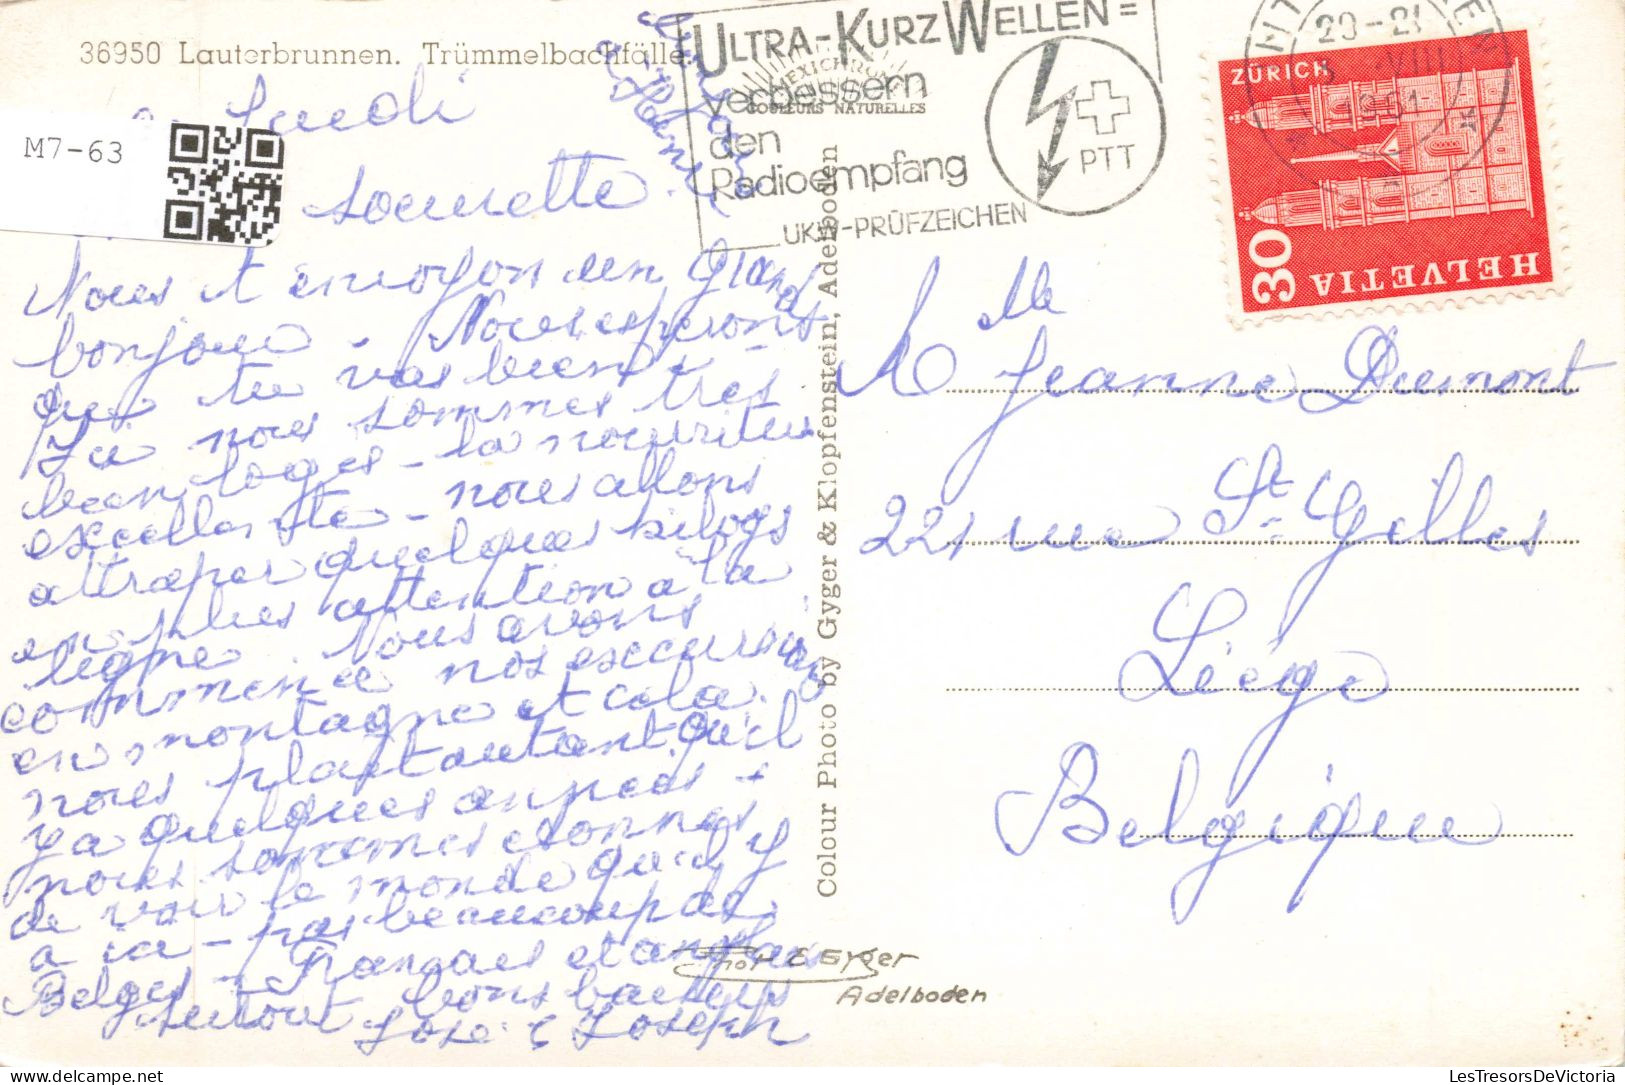 36950 Lauterbrunnen. Trümmelbachfälle.
M7-63
Lundi
soeurette
Nous t'envoyon un grand
bonjour - Nous esperons
que tu vas bien -
Ici nous sommes tres
bien loges - la nourriture
excellente - nous allons
attraper quelques kilogs
en plus attention a la
ligne. Nous avons
commence nos excursions
en montagne et cela
nous plait autant qu'il
y a quelques annees -
nous sommes etonnes
de voir le monde qu'il y
a ici - pas beaucoup de
Belges - Francais et anglais
surtout bons baisers
Jose & Joseph
MEXICHROM
COULEURS NATURELLES
ULTRA-KURZWELLEN=
verbessern
den
Radioempfang
UKW-PRÜFZEICHEN
PTT
20-21
1961
ZÜRICH
30
HELVETIA
Colour Photo by Gyger & Klopfenstein, Adelboden
Mlle
Jeanne Dumont
221 rue St Gilles
Liége
Belgique
Phot E Gyger
Adelboden
LesTresorsDeVictoria.com